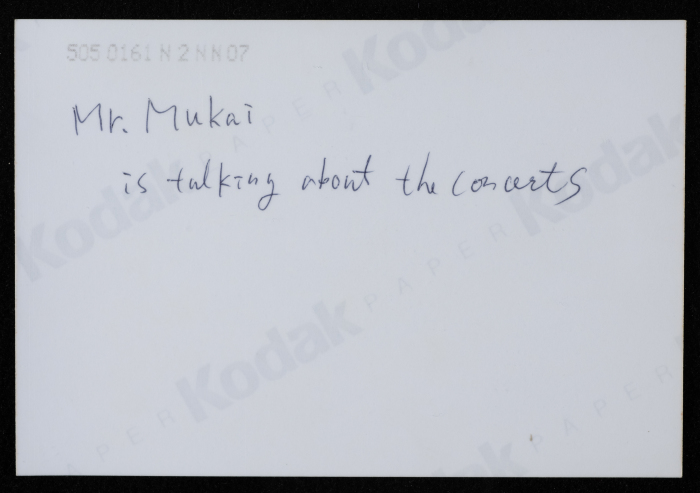 505 0161 N 2 N N 07
Mr. Mukai
is talking about the concerts
Kodak
PAPER
Kodak
PAPER
Kodak
Kodak
PAPER
PAPER
PAPER